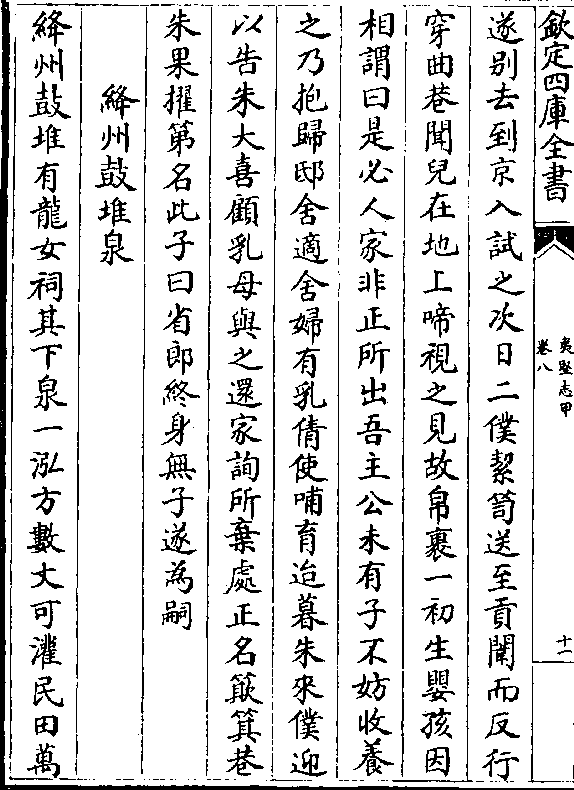 欽定四庫全書
夷堅志甲
卷八
十一
遂别去到京入試之次日二僕絜笥送至貢闈而反行
穿曲巷聞兒在地上啼視之見故帛裹一初生嬰孩因
相謂曰是必人家非正所出吾主公未有子不妨收養
之乃抱歸邸舍適舍婦有乳倩使哺育迨暮朱來僕迎
以告朱大喜顧乳母與之還家詢所棄處正名簸箕巷
朱果擢第名此子曰省郎終身無子遂為嗣
絳州鼓堆泉
絳州鼓堆有龍女祠其下泉一泓方數丈可灌民田萬